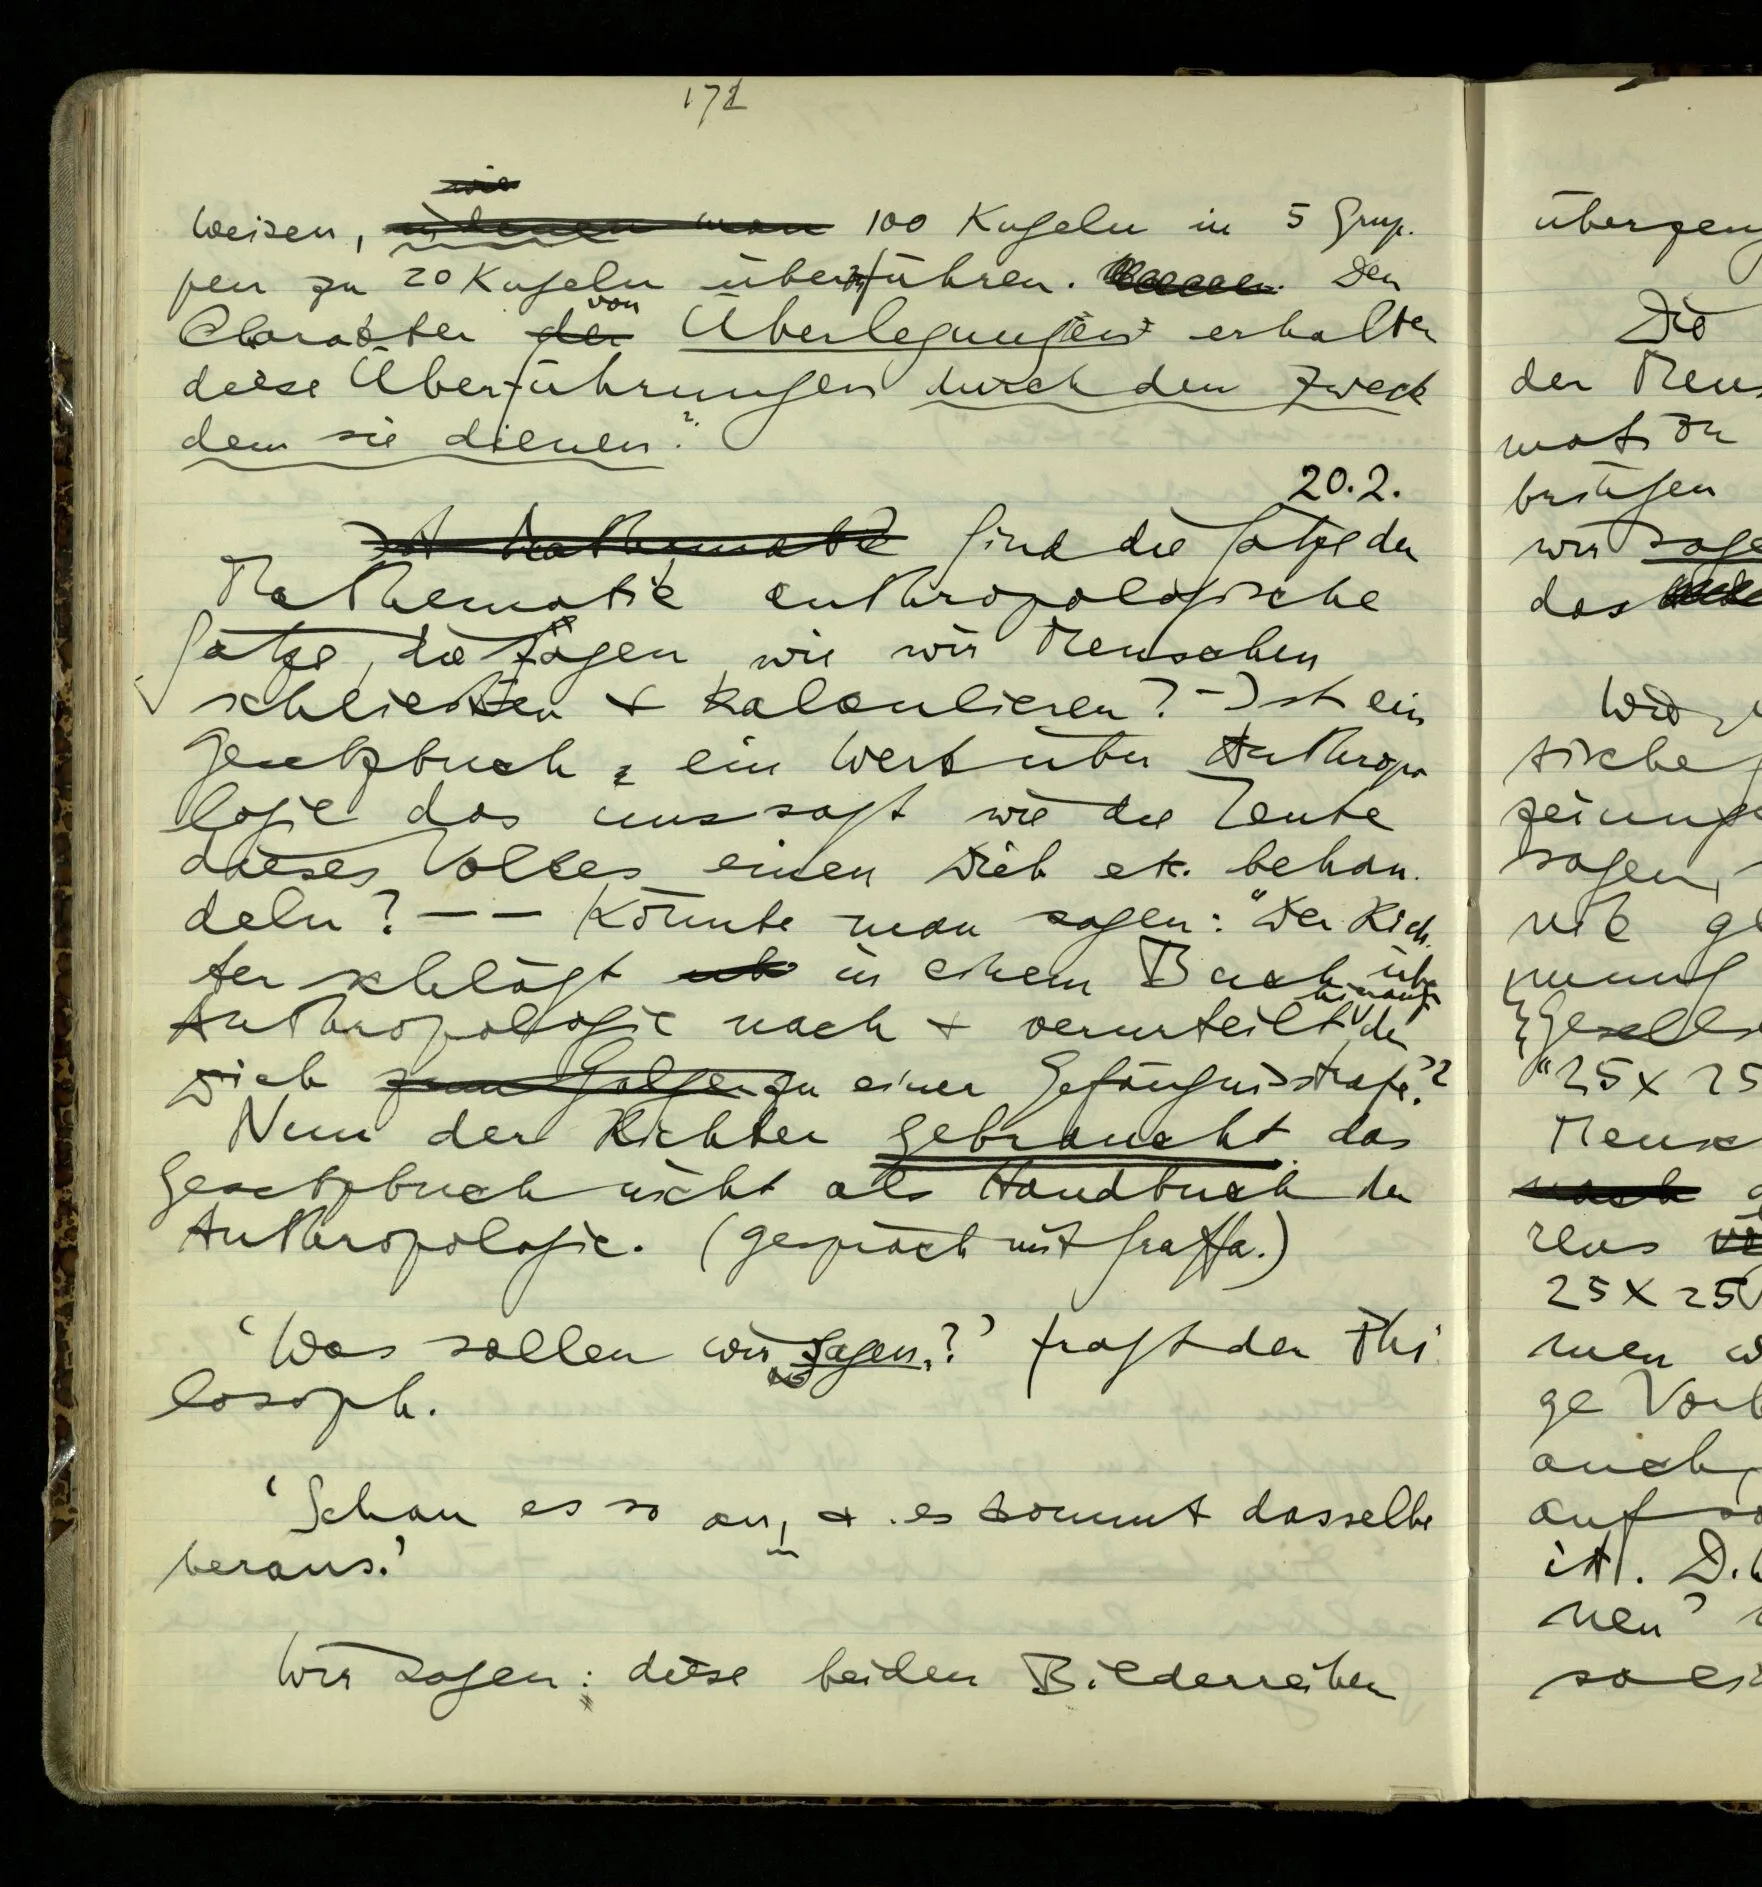 171
weisen, wie
indenen man 100 Kugeln in 5 Grup-
pen zu 20 Kugeln überführen. Den
von
Charakter der Überlegungen erhalten
diese Überführungen durch den Zweck
dem sie dienen?
20.2.
Ist Mathematik Sind die Sätze der
Mathematik anthropologische
Sätze, die sagen wie wir Menschen
schließen & kalkulieren? – Ist ein
Gesetzbuch ein Werk über Anthropo
logie das uns sagt wie die Leute
dieses Volkes einen Dieb etc. behan-
deln? – – Könnte man sagen: "Der Rich-
ter schlägt in einem Buch über
Anthropologie nach & verurteilt hierauf den
Dieb zum Galgen zu einer Gefängnisstrafe"?
Nun der Richter gebraucht das
Gesetzbuch nicht als Handbuch der
Anthropologie. (Gespräch mit Sraffa.)
'Was sollen wir sagen?' fragt der Phi
losoph.
'Schau es so an, & es kommt dasselbe
heraus.'
Wir sagen: diese beiden Bilderreihen
überzeug
Die
der Mens
mat
wir sage
das
tische
zeiung
sagen,
nung
"25 x 25
Mensc
nach
rens
25 x 25
men w
ge Vor
auch,
auf so
ist. D.h
nen'